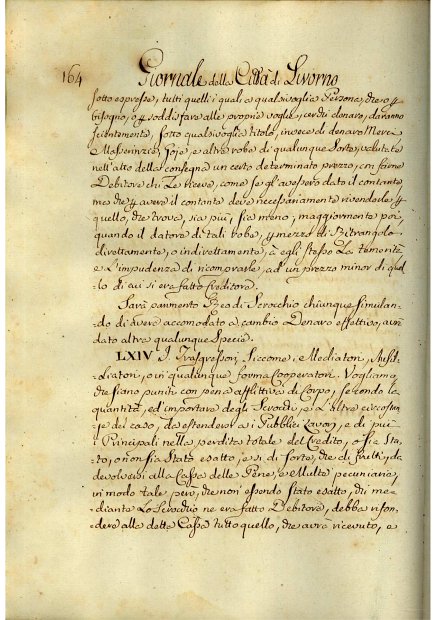 164 Giornale della Città di Livorno
sotto espresse, tutti quelli i quali a qualsivoglia Persona, che o p
bisogno, o p soddisfare alle proprie voglie, cerchi denaro, daranno
scientemente, sotto qualsivoglia titolo, invece di denaro Merci
Masserizie, Gioje, e altra roba di qualunque sorte, valutata
nell'atto della consegna un certo determinato prezzo, con farne
Debitore chi La riceve, come se gl'avessero dato il contante,
ma che p avere il contante deve necessariamente rivenderla p
quello, che trova, sia più, sia meno, maggiormente poi,
quando il datore di tali robe, p mezzo di
direttamente, o indirettamente, à egli stesso La temerità
e L'impudenza di ricomprarle, ad un prezzo minor di quel-
lo di cui si era fatto creditore.
Sarà parimente Reo di Scrocchio chiunque simulan-
do di avere accomodato a cambio Denaro effettivo, avrà
dato altra qualunque Specie.
LXIV I Trasgressori, siccome i Mediatori, Sussi-
diatori, o in qualunque forma Cooperatori. Vogliamo,
che siano puniti con pena afflittiva di Corpo, secondo la
quantità, ed importare degli Scrocchi, e L'altre circostan-
ze dei caso, da estendersi a i Pubblici Lavori, e di più
i Principali nella perdita totale del Credito, o sia sta-
to, o non sia stato esatto, e si di sorte, che di frutti, da
devolversi alla Cassa delle Pene, e Multe pecuniarie,
in modo tale, però, che non essendo stato esatto, chi me-
diante Lo Scrocchio ne era fatto Debitore, debba rifon-
dere alla detta Cassa tutto quello, che avrà ricevuto, e